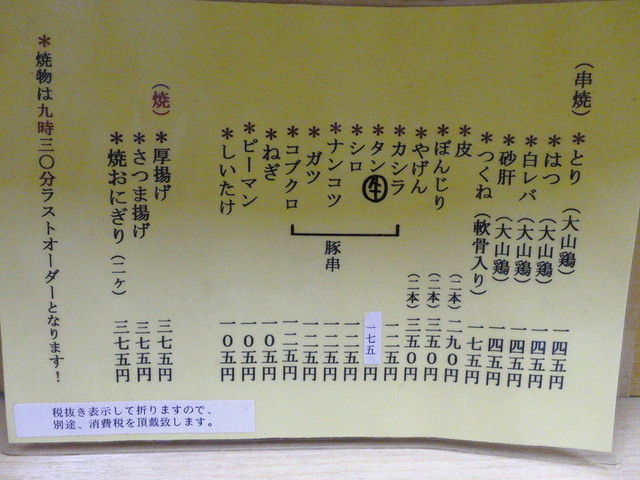 （串焼）
＊とり（大山鶏）一四五円
＊はつ（大山鶏）一四五円
＊白レバ（大山鶏）一四五円
＊砂肝（大山鶏）一四五円
＊つくね（軟骨入り）一七五円
＊皮（二本）二九〇円
＊ぼんじり（二本）三五〇円
＊やげん（二本）三五〇円
＊カシラ 一二五円
＊タン 牛 一七五
＊シロ 一二五円
＊ナンコツ 一二五円
＊ガツ 一二五円
＊コブクロ 一二五円
豚串
＊ねぎ 一〇五円
＊ピーマン 一〇五円
＊しいたけ 一〇五円
（焼）
＊厚揚げ 三七五円
＊さつま揚げ 三七五円
＊焼おにぎり（二ヶ）三七五円
＊焼物は九時三〇分ラストオーダーとなります！
税抜き表示して折りますので、
別途、消費税を頂戴致します。